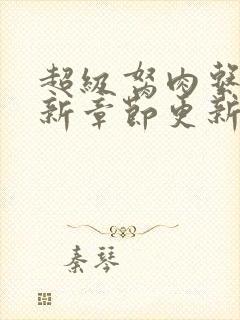 超级驽肉系
新章节更新
秦琴